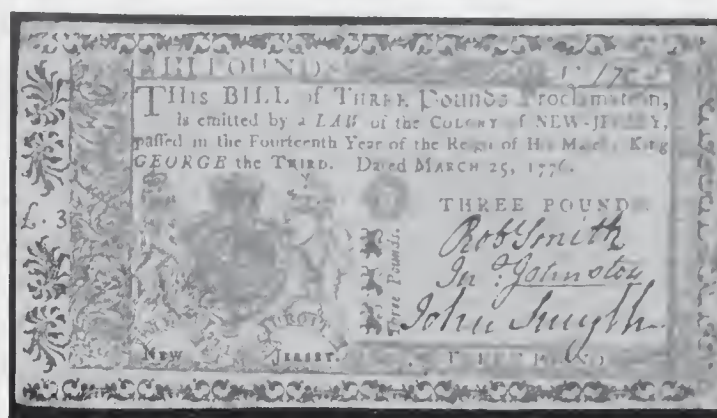 III POUNDS
THIS BILL of THREE Pounds Proclamation,
is emitted by a LAW of the COLONY of NEW-JERSEY,
passed in the Fourteenth Year of the Reign of His Majesty King
GEORGE the THIRD. Dated MARCH 25, 1776.
THREE POUNDS.
£. 3
Three Pounds.
Robt Smith
Jno. Johnston
John Smyth
NEW JERSEY.